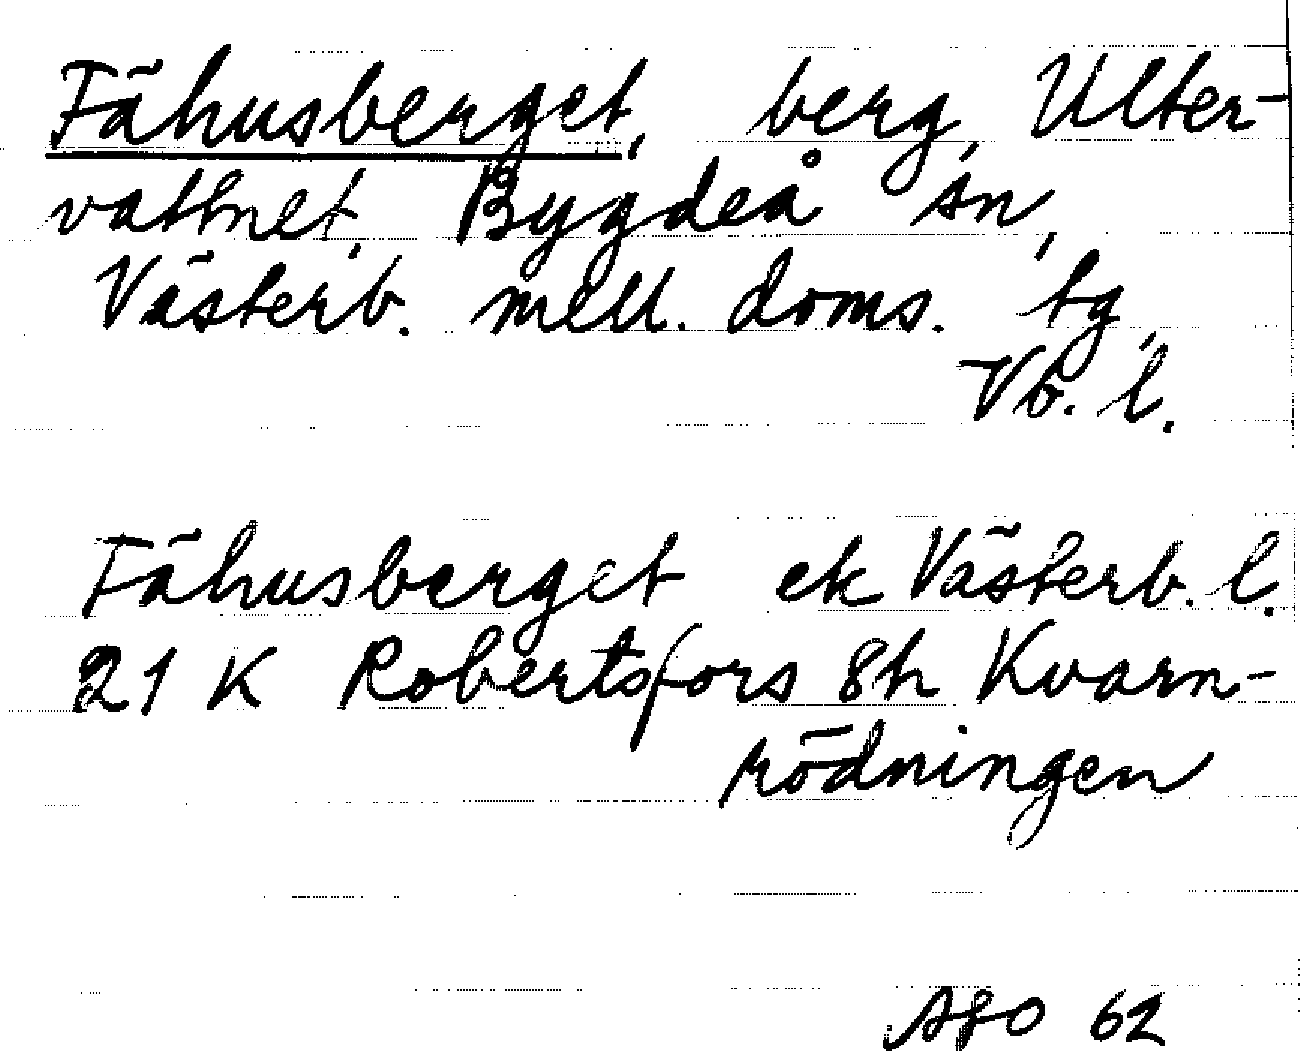 Fähusberget, berg, Ulter-
vattnet, Bygdeå sn,
Västerb. mell. doms. tg,
Vb. l.
Fähusberget ek Västerb. l.
21 K Robertsfors 8h Kvarn-
rödningen
AFO 62